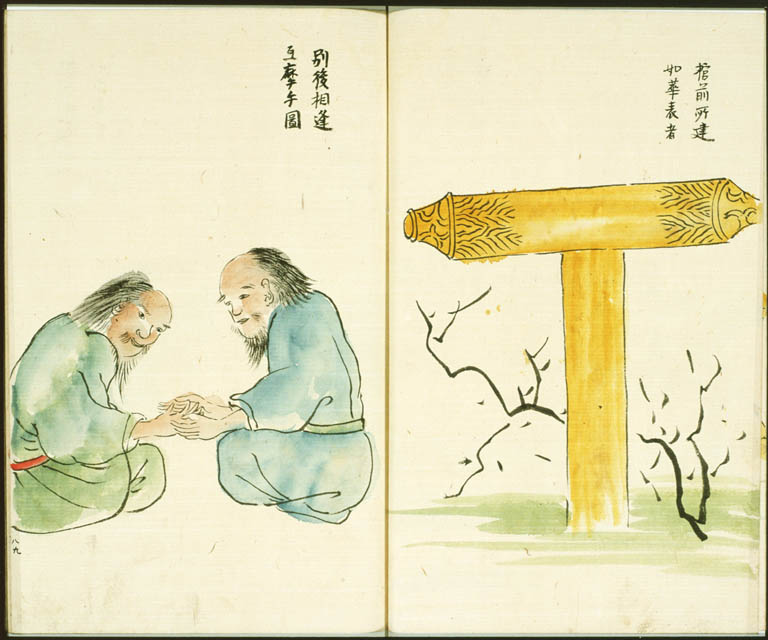 棺前所建
如華表者
別後相逢
互摩手圖
八九